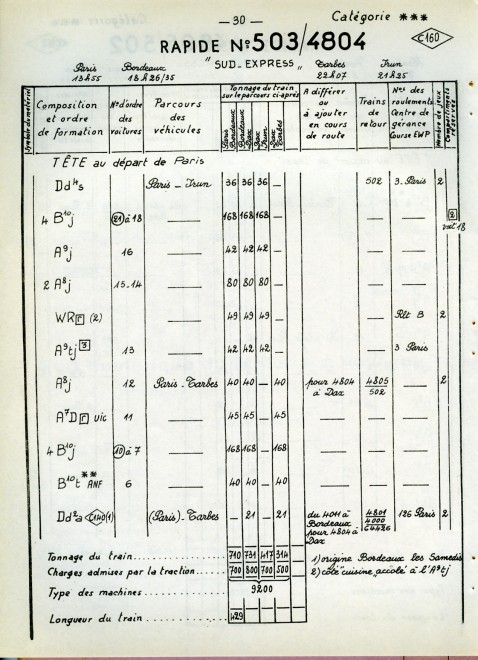 — 30 —
Catégorie ***
RAPIDE N° 503/4804
C160
"SUD-EXPRESS"
Paris Bordeaux Tarbes Irun
13h55 18h26/35 22h07 21h25
Symbole de matériel
Composition et ordre de formation
N° d'ordre des voitures
Parcours des véhicules
Tonnage du train sur le parcours ci-après
Paris Bordeaux
Bordeaux Dax
Dax Irun
Dax Tarbes
A différer ou à ajouter en cours de route
Trains de retour
Nos des roulements Centre de gérance Course EWP
Nombre de jeux
Compartiments
TÊTE au départ de Paris
Dd4s Paris - Irun 36 36 36 — 502 3 Paris 2
4 B10j 21 à 18 —— 168 168 168 — —— —— 2
voit 18
A9j 16 —— 42 42 42 — —— ——
2 A8j 15-14 —— 80 80 80 — —— ——
WRr (2) —— 49 49 49 — —— Rlt B 2
A9tj 3 13 —— 42 42 42 — —— 3 Paris
A8j 12 Paris - Tarbes 40 40 — 40 pour 4804 à Dax 4805/502 —— 2
A7Dr vic 11 —— 45 45 — 45 —— —— ——
4 B10j 10 à 7 —— 168 168 — 168 —— —— ——
B10t ** ANF 6 —— 40 40 — 40 —— —— ——
Dd2a C140 (1) (Paris) - Tarbes — 21 — 21 du 4011 à Bordeaux pour 4804 à Dax 4801/4000/64426 126 Paris 2
Tonnage du train ............ 710 731 417 314
Charges admises par la traction ...... 700 800 700 500
Type des machines ............ 9200
Longueur du train ............ 429
1) origine Bordeaux les Samedis
2) côté "cuisine" accolé à l'A9tj